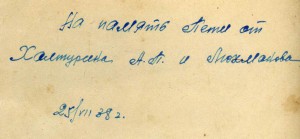 На память Пети от
Халтурина А.П. и Мохманова
25/VII 38 г.